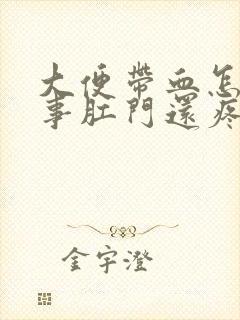 大便帶血怎
事肛門還疼
金宇澄